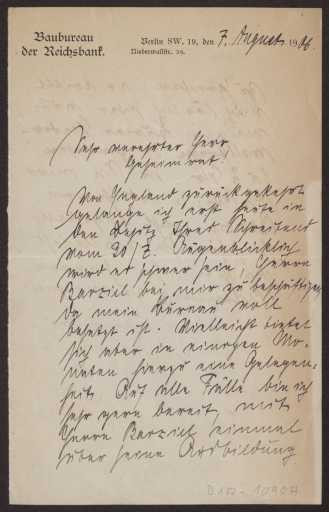 Baubureau
der Reichsbank.
Berlin SW. 19, den 7. August 1906
Niederwallstr. 39.
Sehr verehrter Herr
Geheimrat!
Von England zurückgekehrt
gelange ich erst heute in
den Besitz Ihres Schreibens
vom 20/7. Augenblicklich
wird es schwer sein, Herrn
bei mir zu beschäftigen,
da mein Bureau voll
besetzt ist. Vielleicht bietet
sich aber in einigen Mo-
naten hierzu eine Gelegen-
heit. Auf alle Fälle bin ich
sehr gern bereit, mit
Herrn einmal
über seine Ausbildung